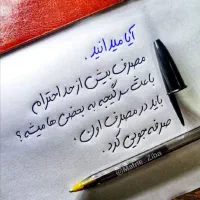 آیا میدانید.
مصرف بیش از حد احترام
باعث سرگیجه به بعضی ها میشه؟
باید در مصرف اون
صرفه جویی کرد.
@Matne_Ziba